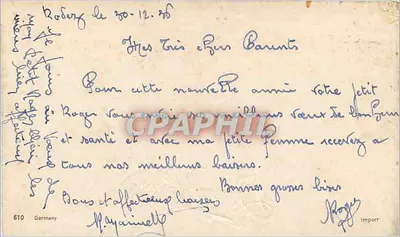 Rodez le 30-12-36
Mes Très chers Parents
Pour cette nouvelle année votre petit
Roger vous envoie ses meilleurs vœux de bonheur
et santé et avec ma petite femme recevez
tous nos meilleurs baisers.
Bonnes grosses bises
Roger
Bons et affectueux baisers
Je joins aux vœux de
mon petit Roger
CPAPHIL
610 Germany
Import